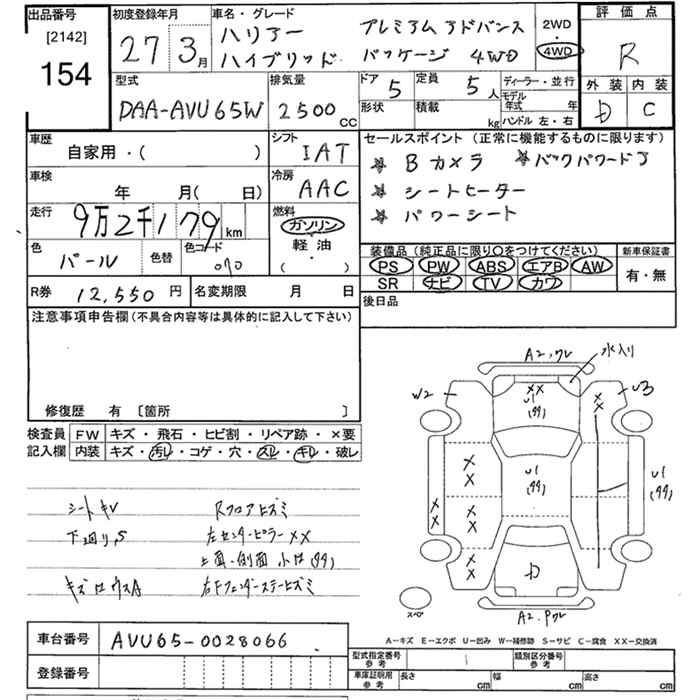 出品番号
[2142]
154
初度登録年月
27 3月
車名・グレード
ハリアー ハイブリッド
プレミアム アドバンス パッケージ 4WD
2WD
・
4WD
評価点
R
外装 内装
D C
型式
DAA-AVU65W
排気量
2500 CC
ドア 5
定員 5人
ディーラー・並行
モデル年式 年
形状
積載 kg
ハンドル 左・右
車歴
自家用・( )
シフト
IAT
車検
年 月( 日)
冷房
AAC
走行
9万2千179 km
燃料
ガソリン
・
軽油
・
( )
色
パール
色替
色コード
070
R券 12,550円
名変期限 月 日
セールスポイント (正常に機能するものに限ります)
Bカメラ
バックパワードア
シートヒーター
パワーシート
装備品 (純正品に限り○をつけてください)
PS PW ABS エアB AW
SR ナビ TV カワ
新車保証書
有・無
後日品
注意事項申告欄 (不具合内容等は具体的に記入して下さい)
修復歴 有 [箇所 ]
検査員記入欄
FW キズ・飛石・ヒビ割・リペア跡・×要
内装 キズ・汚レ・コゲ・穴・スレ・キレ・破レ
シートキレ
下廻りS
Rフロアヒズミ
左センターピラーXX
右Fフェンダーステーヒズミ
A2.ワレ
水入り
W2
U3
XX
U1
(钣)
D
スペア
A2.Pワレ
A-キズ E-エクボ U-凹み W-補修跡 S-サビ C-腐食 XX-交換済
車台番号 AVU65-0028066
登録番号
型式指定番号
参考
類別区分番号
参考
車庫証明用
参考
長さ cm
幅 cm
高さ cm